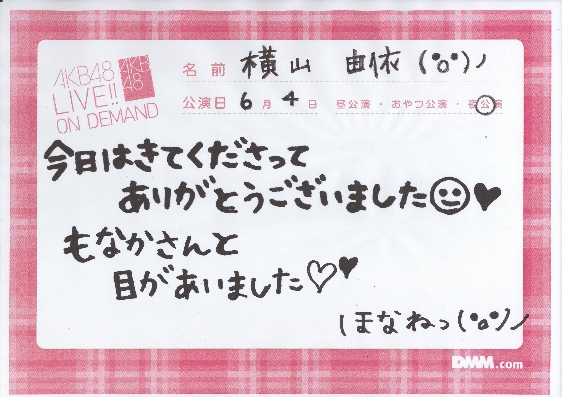 AKB48
LIVE!!
ON DEMAND
AKB
48
名前 横山 由依 (°o°)ノ
公演日 6月4日 昼公演・おやつ公演・夜公演
今日はきてくださって
ありがとうございました
もなかさんと
目があいました♡♥
ほなねっ(°o°)ノ
DMM.com